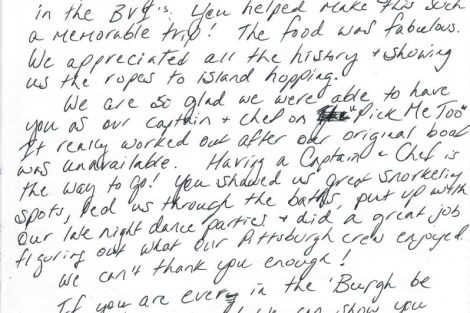 in the BVI's. You helped make this such
a memorable trip! The food was fabulous.
We appreciated all the history + showing
us the ropes to island hopping.
We are so glad we were able to have
you as our captain + chef on "Pick Me Too"
It really worked out after our original boat
was unavailable. Having a Captain + Chef is
the way to go! You showed us great snorkeling
spots, led us through the baths, put up with
our late night dance parties + did a great job
figuring out what our Pittsburgh crew enjoyed.
We can't thank you enough!
If you are ever in the 'Burgh be
we can show you